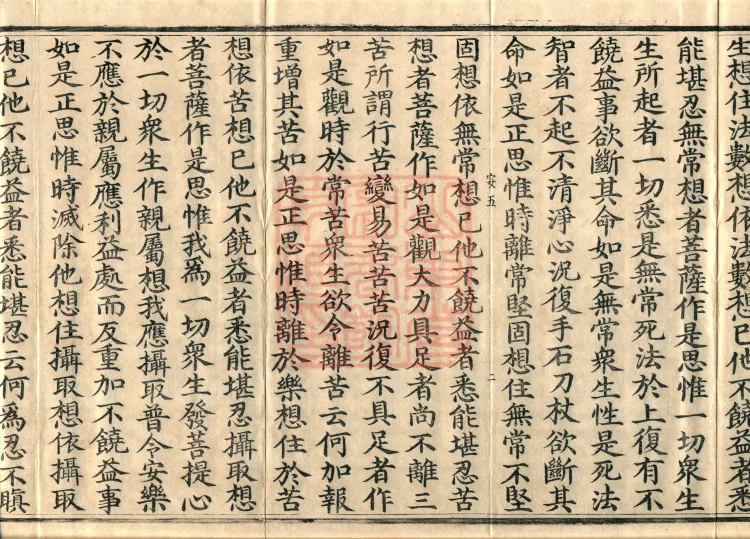 生想住法數想依法數想已他不饒益者悉
能堪忍無常想者菩薩作是思惟一切衆生
生所起者一切悉是無常死法於上復有不
饒益事欲斷其命如是無常衆生性是死法
智者不起不清淨心況復手石刀杖欲斷其
命如是正思惟時離常堅固想住無常不堅
安五
二
固想依無常想已他不饒益者悉能堪忍苦
想者菩薩作如是觀大力具足者尚不離三
苦所謂行苦變易苦苦苦況復不具足者作
如是觀時於常苦衆生欲令離苦云何加報
重增其苦如是正思惟時離於樂想住於苦
想依苦想已他不饒益者悉能堪忍攝取想
者菩薩作是思惟我爲一切衆生發菩提心
於一切衆生作親屬想我應攝取普令安樂
不應於親屬應利益處而反重加不饒益事
如是正思惟時滅除他想住攝取想依攝取
想已他不饒益者悉能堪忍云何爲忍不瞋